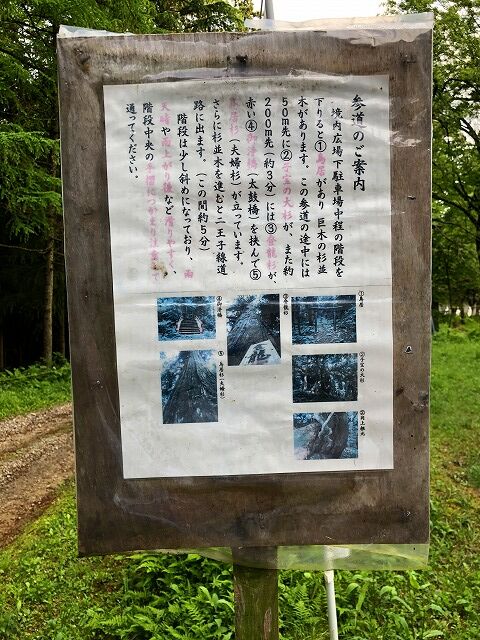 参道のご案内
境内広場下駐車場中程の階段を
下りると①鳥居があり巨木の杉並
木があります。この参道の途中には
50m先に②子宝の大杉が、また約
200m先(約3分)には③登龍杉が、
赤い④御澤橋(太鼓橋)を挟んで⑤
鳥居杉(夫婦杉)が立っています。
さらに杉並木を進むと二王子線道
路に出ます。(この間約5分)
階段は少し斜めになっており、雨
天時や雨上がり後など滑りやすく、
階段中央の
通ってください。
①鳥居
②子宝の大杉
③登龍杉
④御澤橋
⑤鳥居杉(夫婦杉)